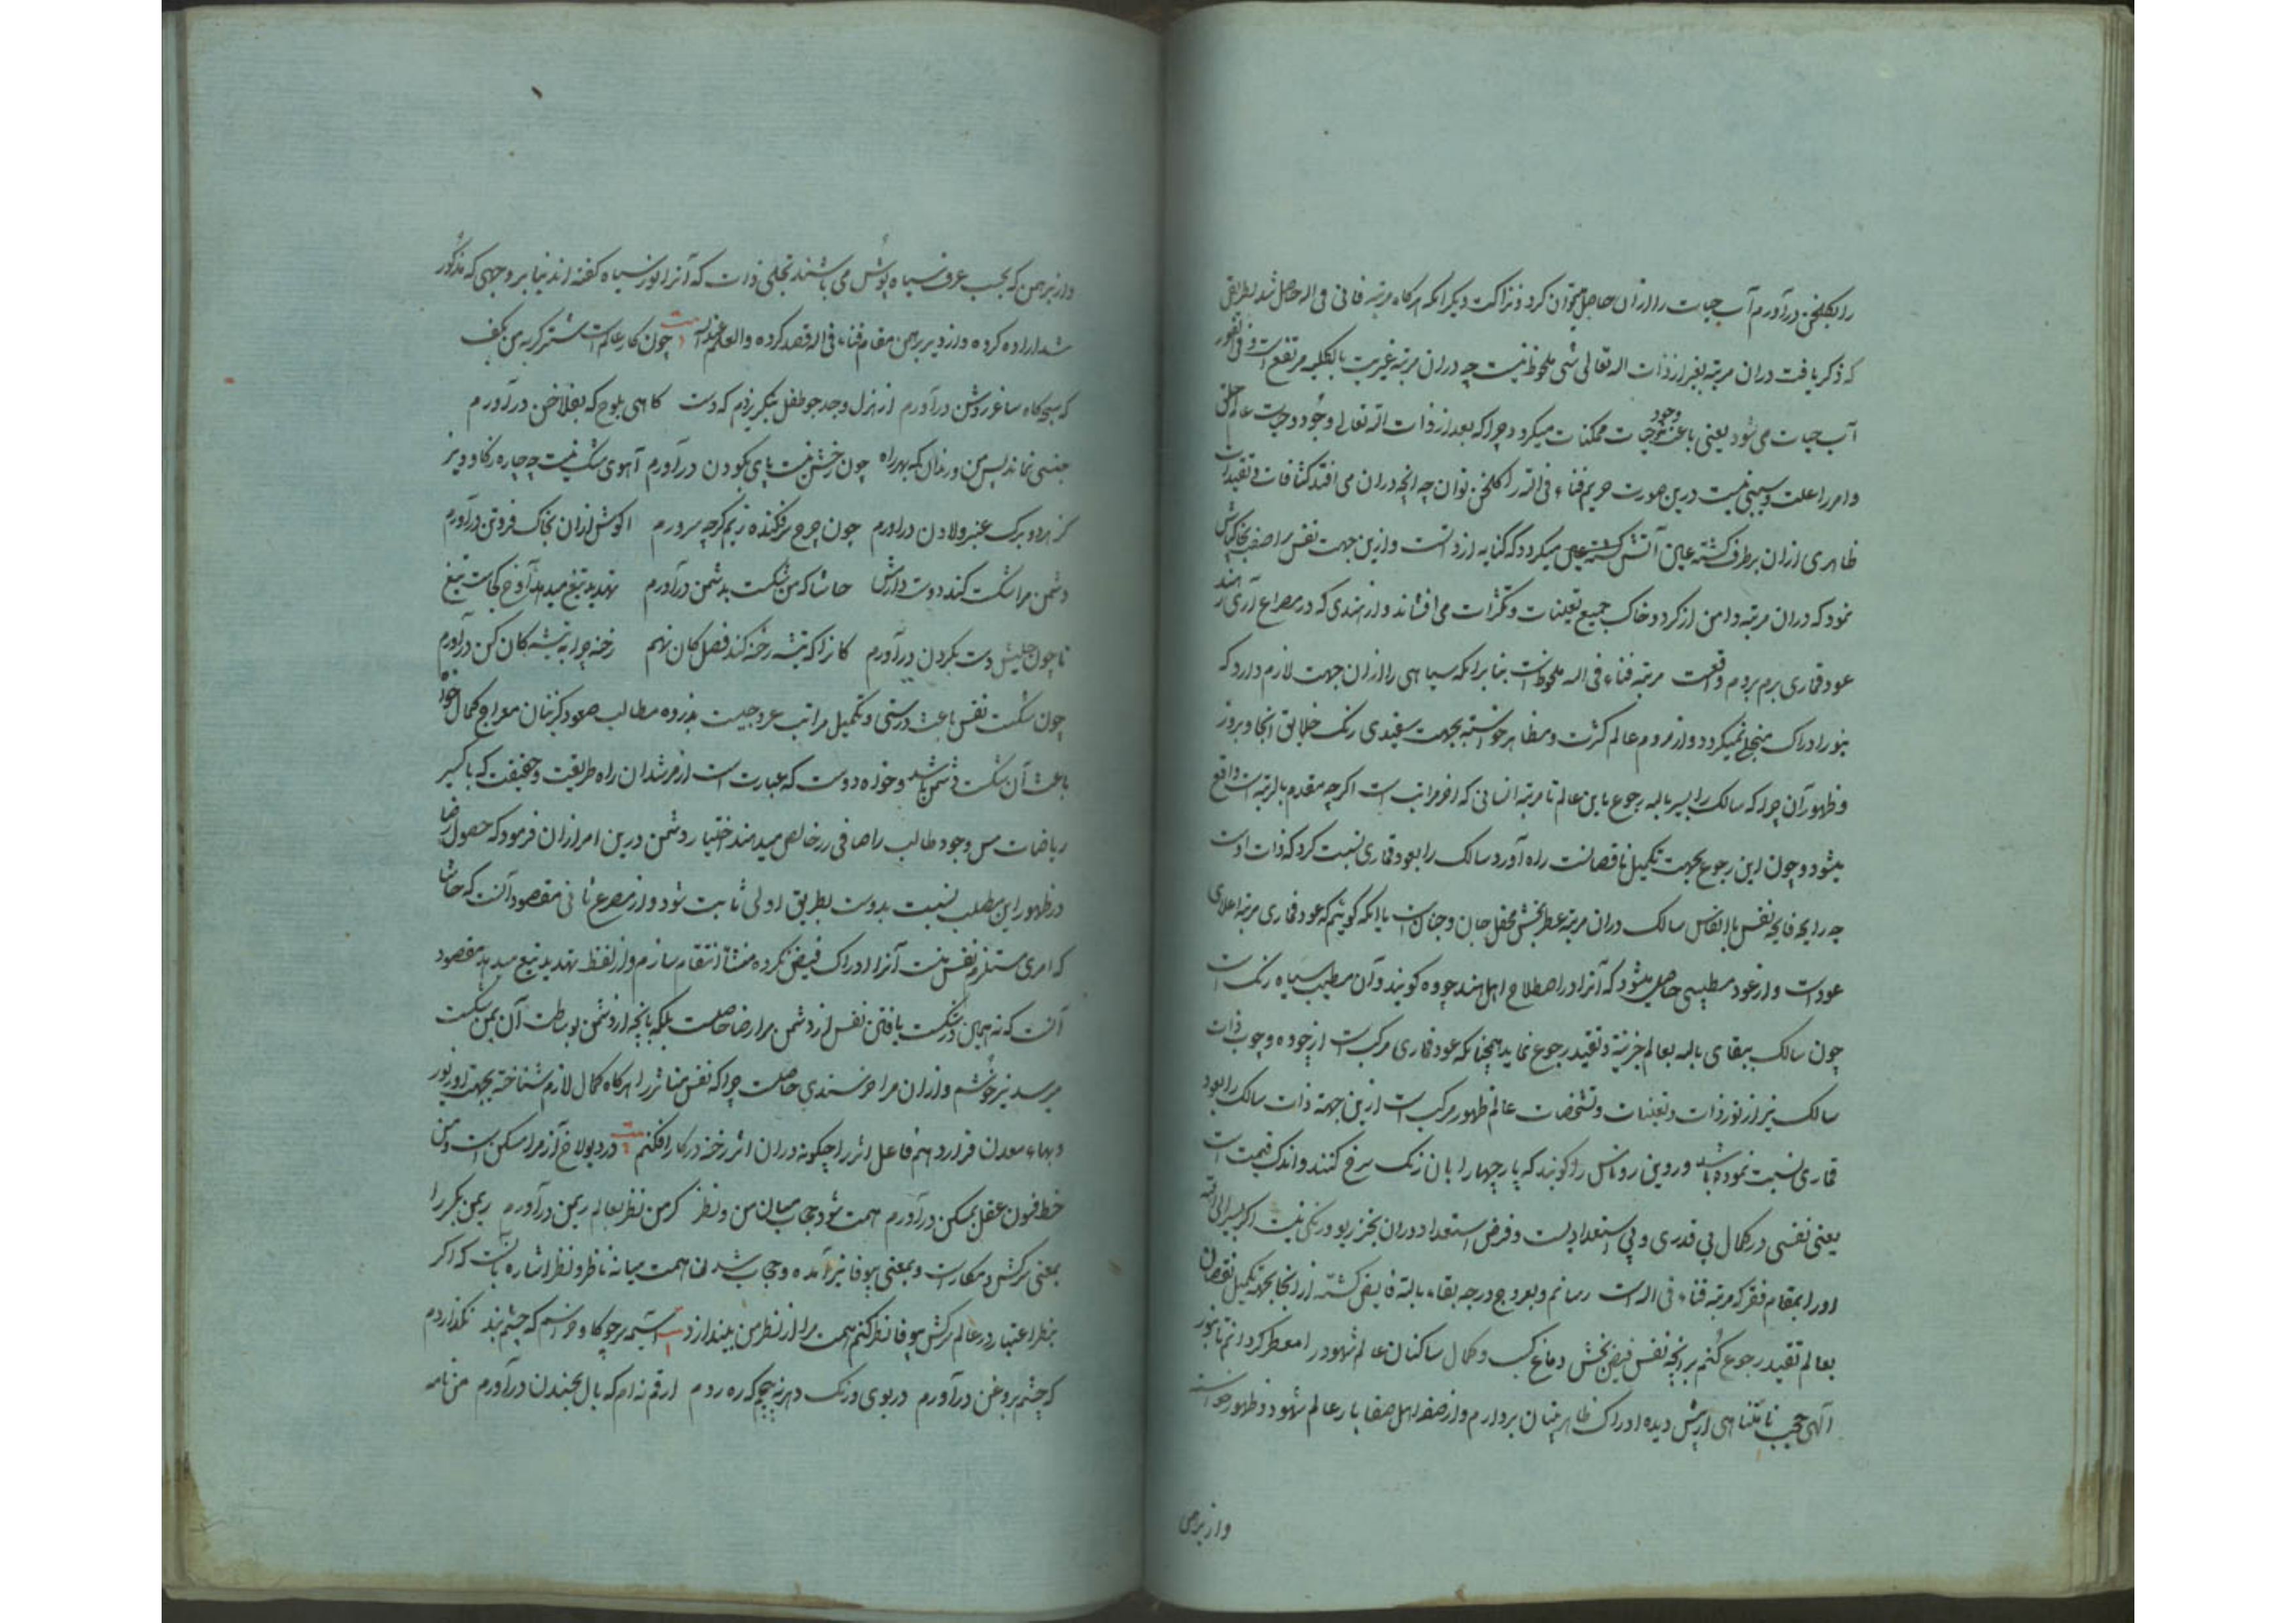 را بگلخن درآورم آب حیات را ازان حاصل میتوان کرد و نزاکت دیگر انکه هرگاه مرتبه فانی فی اله حاصل شد بطریقی
که ذکر یافت دران مرتبه بغیر از ذات اله تعالی شی ملحوظ نیست چه دران مرتبه غیریت بالکلیه مرتفع است و فی الفور
آب حیات می شود یعنی باعث وجود حیات ممکنات میکردد چراکه بعد از ذات اله تعالی وجود و حیات عالم خلق
و امر را علت و سببی نیست درین صورت حریم فناء فی اله را گلخن توان چه انچه دران می افتد کثافات و تقیدات
ظاهری ازان برطرف کشته عین آتش میکردد که کنایه از ذاتست و ازین جهت نفس را صفت
نمود که دران مرتبه دامن از کرد و خاک جمیع تعینات و تکثرات می افشاند و از هندی که در مصراع آری ز هند
عود قماری برم بردم واقعست مرتبه فناء فی اله ملحوظ است بنا برانکه سیاهی را ازان جهت لازم دارد که
بنور ادراک منجلی نمیکردد و از مردم عالم کثرت و مظاهر خواسته بجهت سفیدی رنک خلایق انجا و بروز
و ظهور آن چراکه سالک را بسیر باله رجوع باین عالم تا مرتبه انسانی که اخر مراتب است اکرچه مقدم بالرتبه است واقع
میشود و چون این رجوع بجهت تکمیل ناقصانست راه آورد سالک را بعود قماری نسبت کرد که ذات اوست
چه رایحه فایحه نفس با انفاس سالک دران مرتبه عطر بخش محفل جان و جنان است یا انکه کوئیم که عود قماری مرتبه اعلای
عود است و از عود مطیبی حاصل میشود که آنرا در اصطلاح اهل هند چووه کویند و آن مطیب سیاه رنک است
چون سالک ببقای باله بعالم جزئیة و تقید رجوع نماید همچنانکه عود قماری مرکب است از چوده و چوب ذات
سالک نیز از نور ذات و تعینات و تشخصات عالم ظهور مرکب است ازین جهة ذات سالک را بعود
قماری نسبت نموده باشد و روین روناس را کویند که پارچها را بان رنک سرخ کنند و اندک قیمت است
یعنی نفسی در کمال بی قدری و بی استعدادیست و فرض استعداد دران بجز ریو و رنکی نیست اکر بسیر الی اله
او را بمقام فقر که مرتبه فناء فی اله است رسانم و بعروج درجه بقاء باله فایض کشته از انجا بجهة تکمیل نقصان
بعالم تقید رجوع کنم برانچه نفس فیض بخش دماغ کسب و کمال ساکنان عالم شهود را معطر کردانم تا بنور
آلهی حجب نامتناهی از پیش دیده ادراک ظاهر بینان بردارم و از صفر اهل صفا بار عالم شهود و ظهور خواسته
و از برهمن
و از برهمن که بحسب عرف سیاه پوش می باشند تجلی ذات که آنرا نور سیاه کفته اند بنا بر وجهی که مذکور
شد اراده کرده و از دیر برهمن مقام فناء فی اله قصد کرده والعلم عند اله چون کار عالم است شتر کربه من بکف
که سبحه گاه ساغر روشن درآورم از هزل و جد چو طفل بنگریزدم که دست کاهی بلوح که بفلاخن درآورم
جنسی نماند پس من و رندان که بهر راه چون رخش نیست پای بکودن درآورم آهوی مشک نیست چه چاره ز کاو و بز
کز هر دو برک عنبر و لادن درآورم چون چرخ سرفکنده زیم کرچه سرورم اکوش ازان بخاک فروتن درآورم
دشمن مرا شکست کند دوست دارمش حاشا که من شکست بدشمن درآورم تهدید تیغ میدهد آوخ کجاست تیغ
تا چون حلیش دست بکردن درآورم کانرا که تیشه رخنه کند فضل کان نهم رخنه چرا به تیشه کان کن درآورم
چون شکست نفس باعث درستی و تکمیل مراتب عروجیست بذروه مطالب صعود گزینان معراج کمال خواه
باعث آن شکست دشمن باشد و خواه دوست که عبارت است از مرشدان راه طریقت و حقیقت که باکسیر
ریاضات مس وجود طالب را صافی زر خالص میدهند اختیار دشمن درین امر ازان فرمود که حصول رضا
در ظهور این مطلب نسبت بدوست بطریق اولی ثابت شود و از مصرع ثانی مقصود آنست که حاشا
که امری مستلزم نقص نیست آنرا ادراک فیض نکرده منشأ انتقام سازم و از لفظ تهدید تیغ میدهد مقصود
آنست که نه همین در شکست یافتن نفس از دشمن مرا رضا حاصلست بلکه بانچه از دشمن بوساطت آن بمن شکست
میرسد نیز خوشم و ازان مرا خرسندی حاصلست چراکه نفس متاثر را هرکاه کمال لازم شناخته بجهة او نور
و بهاء معدن قرار دهم فاعل اثر را چکونه دران اثر رخنه در کار افکنم در دیولاخ آز مرا مسکن است و من
خط فسون عقل بمسکن درآورم همت شود حجاب میان من و نظر کر من نظر بعالم ریمن درآورم ریمن بکر را
بمعنی سرکش و مکار است و بمعنی بیوفا نیز آمده و حجاب شدن همت میانه ناظر و نظر اشاره بانست که اکر
بنظر اعتبار در عالم سرکش بیوفا نظر کنم همت مرا از نظر من بیندازد است بسیمه چو کاو خراسم که چشم بند نکذاردم
که چشم بروغن درآورم در بوی و رنک دهر نه پیچم که ره روم ارقم نه ام که بال بچندن درآورم من نامه